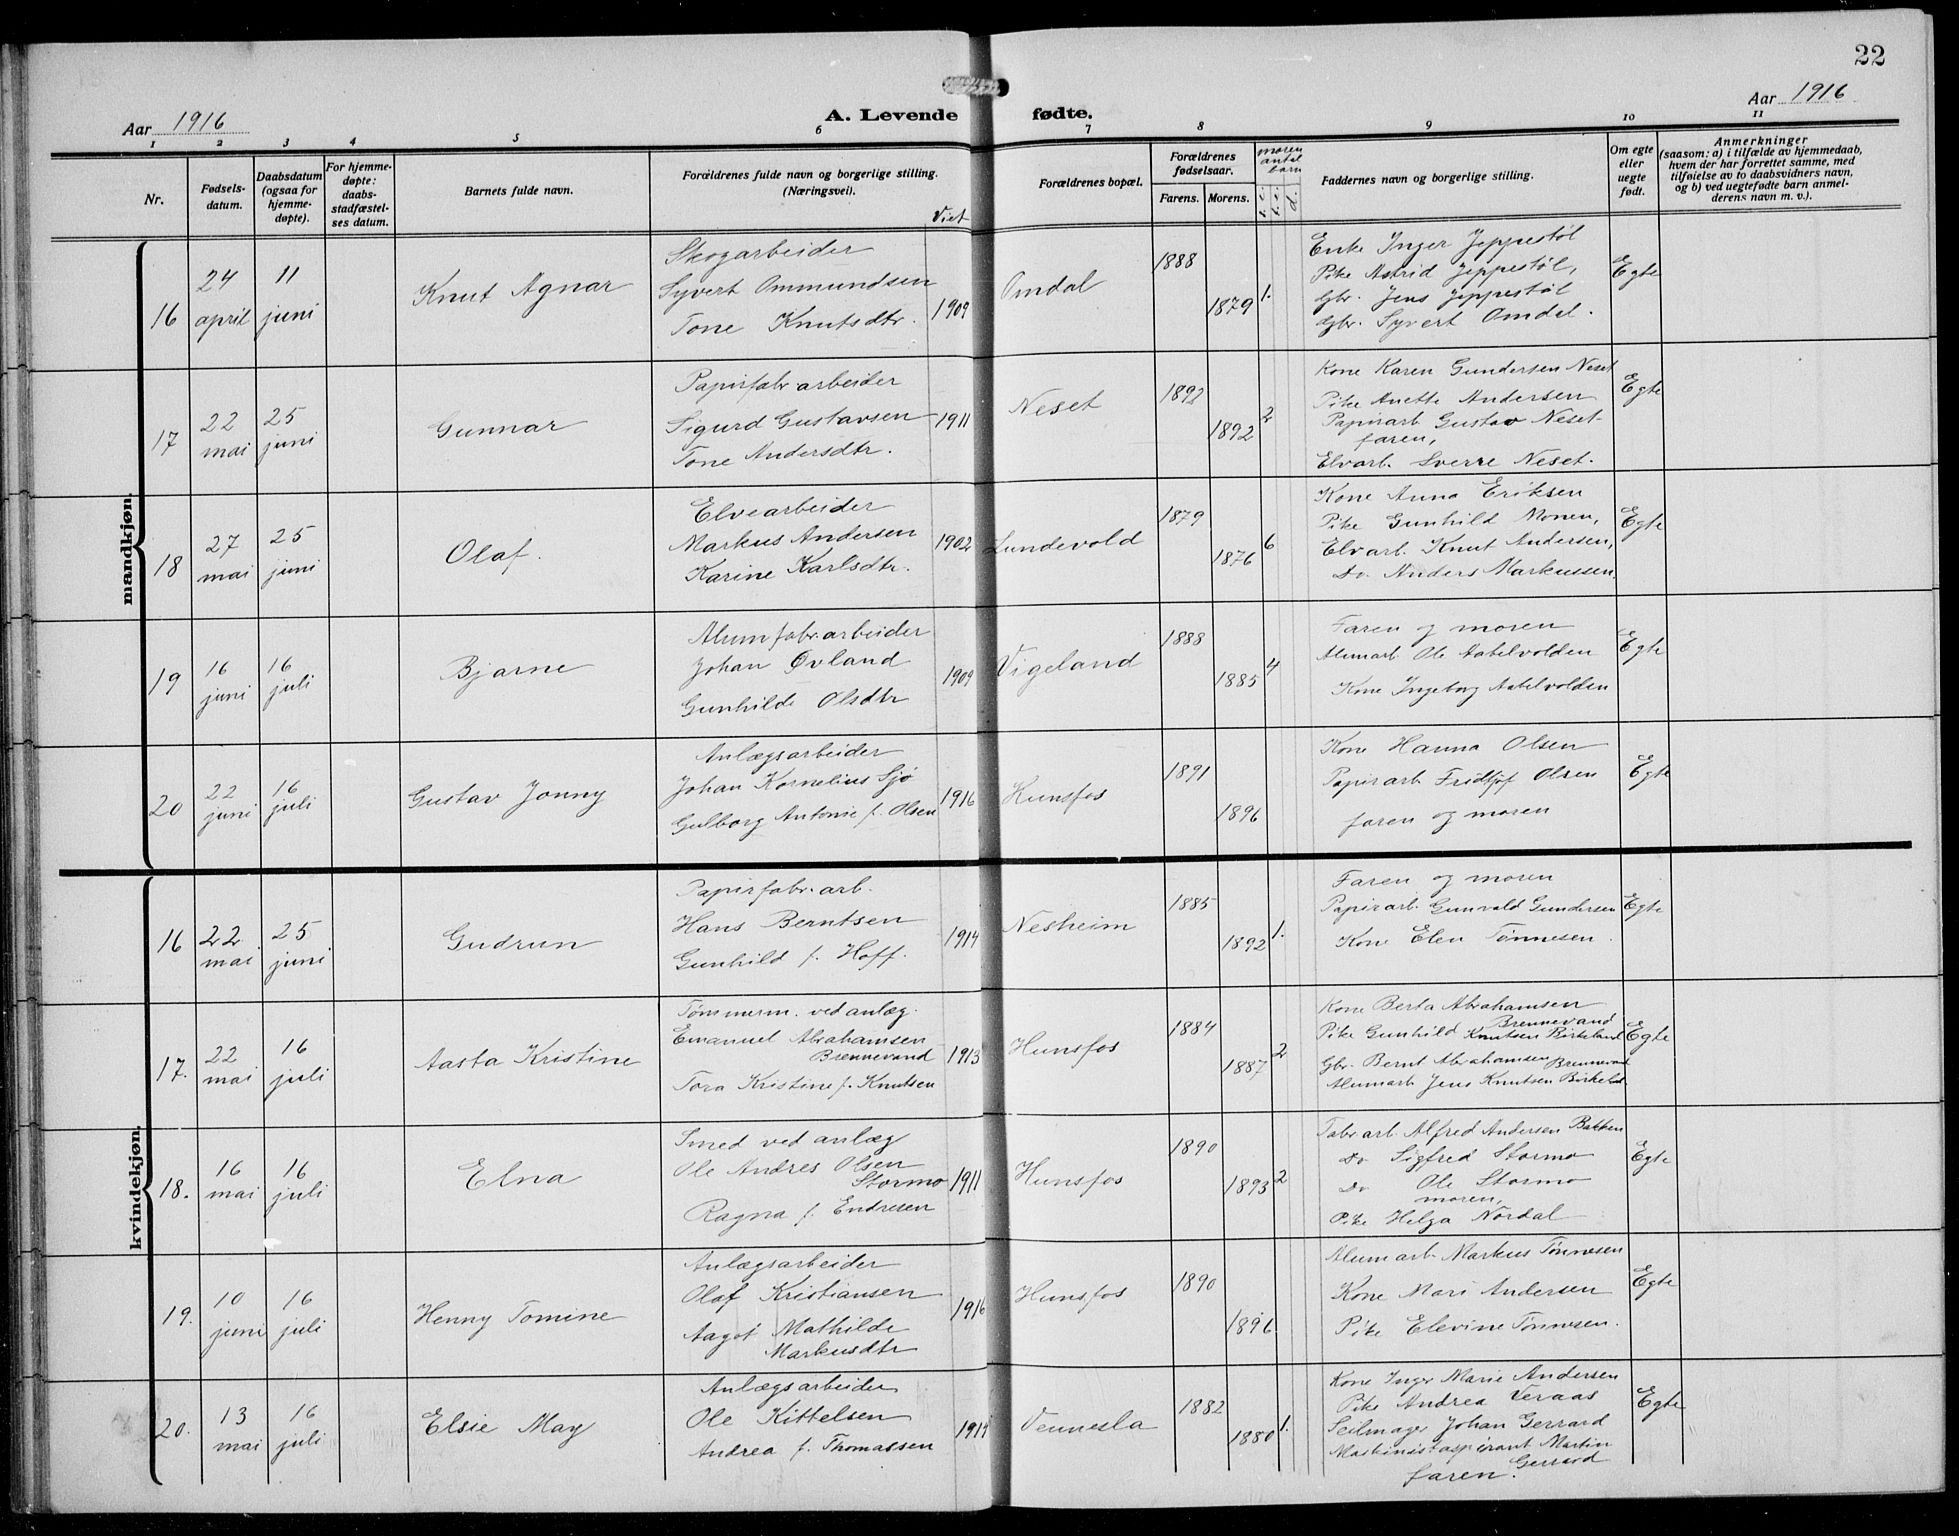 22
Aar 1916
A. Levende fødte.
Aar 1916
1 2 3 4 5 6 7 8 9 10 11
Nr.
Fødsels-
datum.
Daabsdatum
(ogsaa for
hjemme-
døpte).
For hjemme-
døpte:
daabs-
stadfæstel-
ses datum.
Barnets fulde navn.
Forældrenes fulde navn og borgerlige stilling.
(Næringsvei).
Viet
Forældrenes bopæl.
Forældrenes
fødselsaar.
Farens. Morens.
moren
antal
barn
Faddernes navn og borgerlige stilling.
Om egte
eller
uegte
født.
Anmerkninger
(saasom: a) i tilfælde av hjemmedaab,
hvem der har forrettet samme, med
tilføielse av to daabsvidners navn,
og b) ved uegtefødte barn anmel-
derens navn m. v.).
mandkjøn.
16
24
april
11
juni
Knut Agnar
Skogarbeider
Syvert Ommundsen
Tone Knutsdtr.
1909
Omdal
1888
1879
1.
Enke Inger Jeppestøl
Pike Astrid Jeppestøl,
Gbr. Jens Jeppestøl
Gbr. Syvert Omdal.
Egte
17
22
mai
25
juni
Gunnar
Papirfabr.arbeider
Sigurd Gustavsen
Tone Andersdtr.
1911
Neset
1892
1892
2
Kone Karen Gundersen Neset
Pike Anette Andersen
Papirarb. Gustav Neset
faren,
Elvarb. Sverre Neset.
Egte
18
27
mai
25
juni
Olaf.
Elvearbeider
Markus Andersen
Karine Karlsdtr.
1902
Lundevold
1879
1876
6
Kone Anna Eriksen
Pike Gunhild Monen,
Elvarb. Knut Andersen,
Do. Anders Markussen.
Egte
19
16
juni
16
juli
Bjarne
Alumfabr.arbeider
Johan Øvland
Gunhilde Olsdtr
1909
Vigeland
1888
1885
4
Faren og moren
Alumarb Ole Aatelvolden
Kone Ingeborg Aatelvolden
Egte
20
22
juni
16
juli
Gustav Jonny
Anlægsarbeider
Johan Kornelius Sjø
Gulborg Antonie f. Olsen
1916
Hunsfos
1891
1896
Kone Hanna Olsen
Papirarb. Fridtjof Olsen
faren og moren
Egte
kvindekjøn.
16
22
mai
25
juni
Gudrun
Papirfabr.arb.
Hans Berntsen
Gunhild f. Hoff.
1914
Nesheim
1885
1892
1.
Faren og moren
Papirarb. Gunvald Gundersen
Kone Elen Tønnesen.
Egte
17.
22
mai
16
juli
Aasta Kristine
Tømmerm. ved anlæg.
Emanuel Abrahamsen
Brennevand
Tora Kristine f. Knutsen
1913
Hunsfos
1884
1887
2
Kone Berta Abrahamsen
Brennevand
Pike Gunhild Knutsen Birkeland
Gbr. Bernt Abrahamsen Brennevand
Alumarb. Jens Knutsen Birkeld.
Egte
18.
16
mai
16
juli
Elna
Smed ved anlæg
Ole Andres Olsen
Stormo
Ragna f. Endresen
1911
Hunsfos
1890
1893
2
Fabr.arb. Alfred Andersen Bakken
Do Sigfred Stormo
Do Ole Stormo
moren,
Pike Helga Nordal
Egte
19.
10
juni
16
juli
Henny Tomine
Anlægsarbeider
Olaf Kristiansen
Aagot Mathilde
Markusdtr
1916
Hunsfos
1890
1896.
Alumarb. Markus Tønnesen
Kone Mari Andersen
Pike Elevine Tønnesen.
Egte
20.
13
mai
16
juli
Elsie May
Anlægsarbeider
Ole Kittelsen
Andrea f. Thomassen
1914
Vennesla
1882
1880
1.
Kone Inger Marie Andersen
Pike Andrea Veraas
Seilmager Johan Gerrard
Maskinistaspirant Martin
Gerrard
faren.
Egte